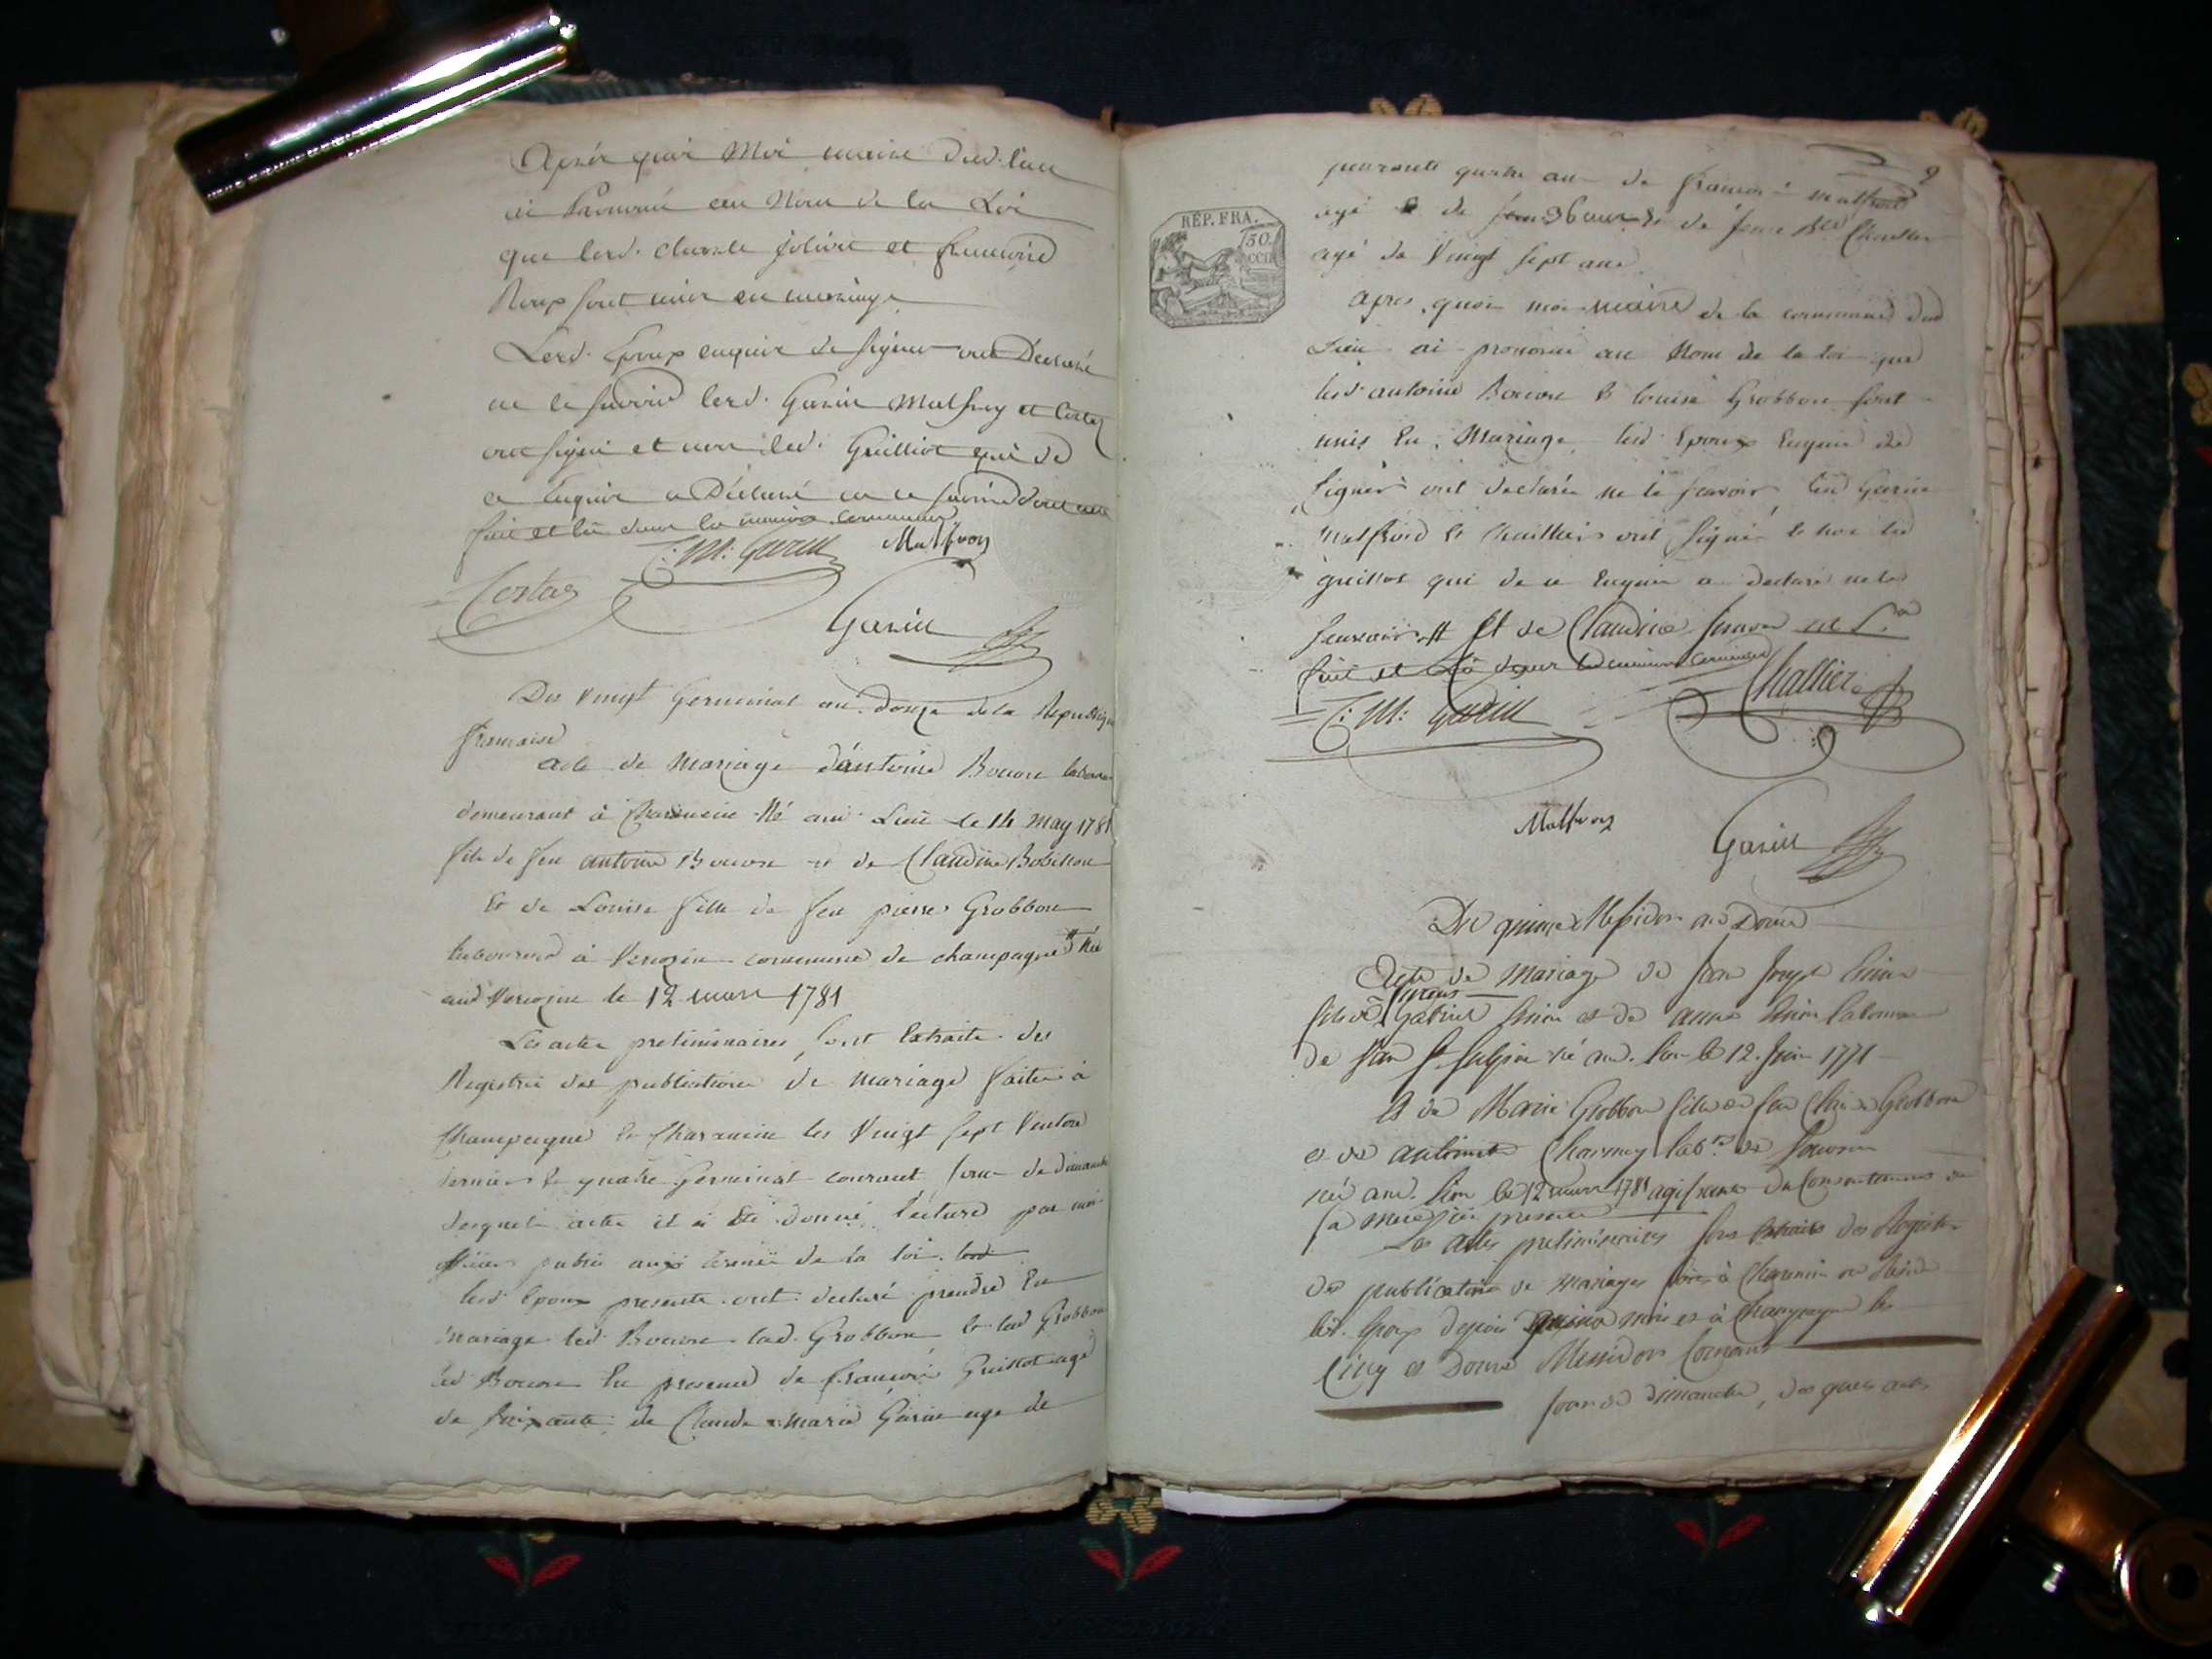 Après quoi Moi maire dud. lieu
ai Prononcé au Nom de la Loi
que lesd. Claude et françoise
Roux sont unis en mariage
Lesd. Epoux enquis de signer ont Déclaré
ne le savoir lesd. Garin Malfroy et
ont signé et non led. Guilliot qui de
ce Enquis a Déclaré ne le savoir
fait et lu dans la maison commune
C: M: Garin Malfroy
Costaz
Garin
Du Vingt Germinal an douze de la Republique
francaise
acte de Mariage d'antoine Bouvre
demeurant à Né aud. Lieu le 14 may 1781
fils de feu antoine Bouvre et de Claudine
Et de Louise fille de feu pierre Grobbon
à commune de champagne # Née
aud. le 12 mars 1781
Les actes preliminaires sont Extraits des
Registres des publications de mariage faites à
Champagne & les Vingt sept Ventose
dernier & quatre Germinal courant jour de dimanche
desquels actes il a été donné lecture par moi
officier public aux termes de la loi
lesd. Epoux presents ont declaré prendre En
mariage led. Bouvre lad. Grobbon & lad. Grobbon
led. Bouvre En presence de françois Guillot agé
de soixante de Claude marie Garin age de
9
quarante quatre ans de francois malfroid
agé de 36 ans & de
agé de Vingt sept ans
Apres quoi moi maire de la commune dud.
Lieu ai prononcé au Nom de la loi que
lesd. antoine Bouvre & louise Grobbon sont
unis En Mariage lesd. Epoux Enquis de
signer ont declarés ne le savoir lesd. Garin
malfroid & ont signé & non led.
guillot qui de ce Enquis a declaré ne le
scavoir # Et de Claudine
fait et lu dans la maison commune
C: M: Garin Challier
REP. FRA.
50.
Malfroy
Garin
Du quinze Messidor an Douze
Acte de Mariage de Jean Joseph
fils de Gabriel et de anne
de St Sulpice né aud. lieu le 12. Juin 1771
et de Marie Grobbon fille de feu Grobbon
et de antoinette Charmey labrs de
née aud. lieu le 12 mars 1781 agissant du Consentement de
sa mere ici presente
Les actes preliminaires sont Extraits des Registres
des publications de mariages faites à
led. Epoux depuis mois et à Champagne les
Cinq et Douze Messidor Courant
jour de dimanche, desquels actes